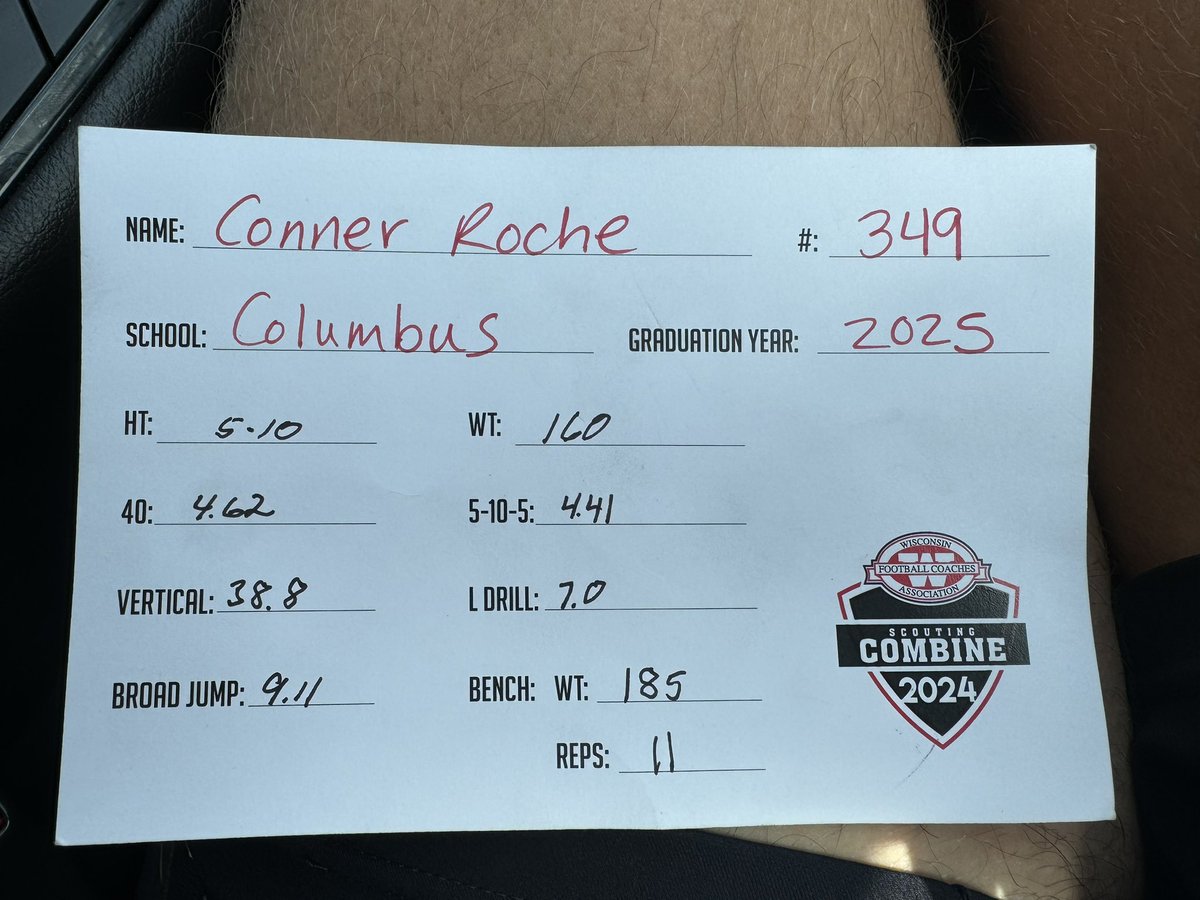 NAME: Conner Roche #: 349
SCHOOL: Columbus GRADUATION YEAR: 2025
HT: 5-10 WT: 160
40: 4.62 5-10-5: 4.41
VERTICAL: 38.8 L DRILL: 7.0
BROAD JUMP: 9.11 BENCH: WT: 185
REPS: 11
WISCONSIN
FOOTBALL COACHES
W
ASSOCIATION
SCOUTING
COMBINE
2024